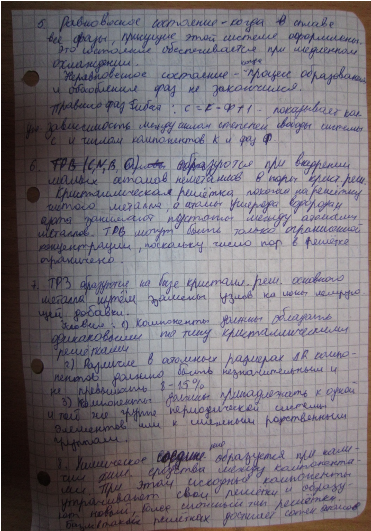 5. Равновесное состояние - когда в сплаве
все фазы, присущие этой системе оформлены.
Это состояние обеспечивается при медленном
охлаждении.
Неравновесное состояние - когда процесс образования
и обособления фаз не закончился.
Правило фаз Гиббса: C=K-Ф+1 - показывает
зависимость между числом степеней свободы системы
С и числом компонентов К и фаз Ф
6. ТРВ (C, N, B образуются при внедрении
малых атомов неметаллов в поры крист. реш.
Кристаллическая решётка похожа на решётку
чистого металла, а атомы углерода водорода
азота занимают пустоты между атомами
металлов. ТРВ могут быть только ограниченной
концентрации, поскольку число пор в решетке
ограничено.
7. ТРЗ образуются на базе кристалл. реш. основного
металла путём замены узлов на ионы легирую
щей добавки.
Условия: 1) Компоненты должны обладать
одинаковыми по типу кристаллическими
решетками
2) Различие в атомных размерах ΔR компо-
нентов должно быть незначительным и
не превышать 8-15%
3) Компоненты должны принадлежать к одной
и той же группе периодической системы
элементов или к смежным родственным
группам.
Химическое соединение образуется при нали-
чии хим. сродства между компонента-
ми. При этом исходные компоненты
утрачивают свои решетки и образу-
ют новый, более сложный тип решетки.
решетках